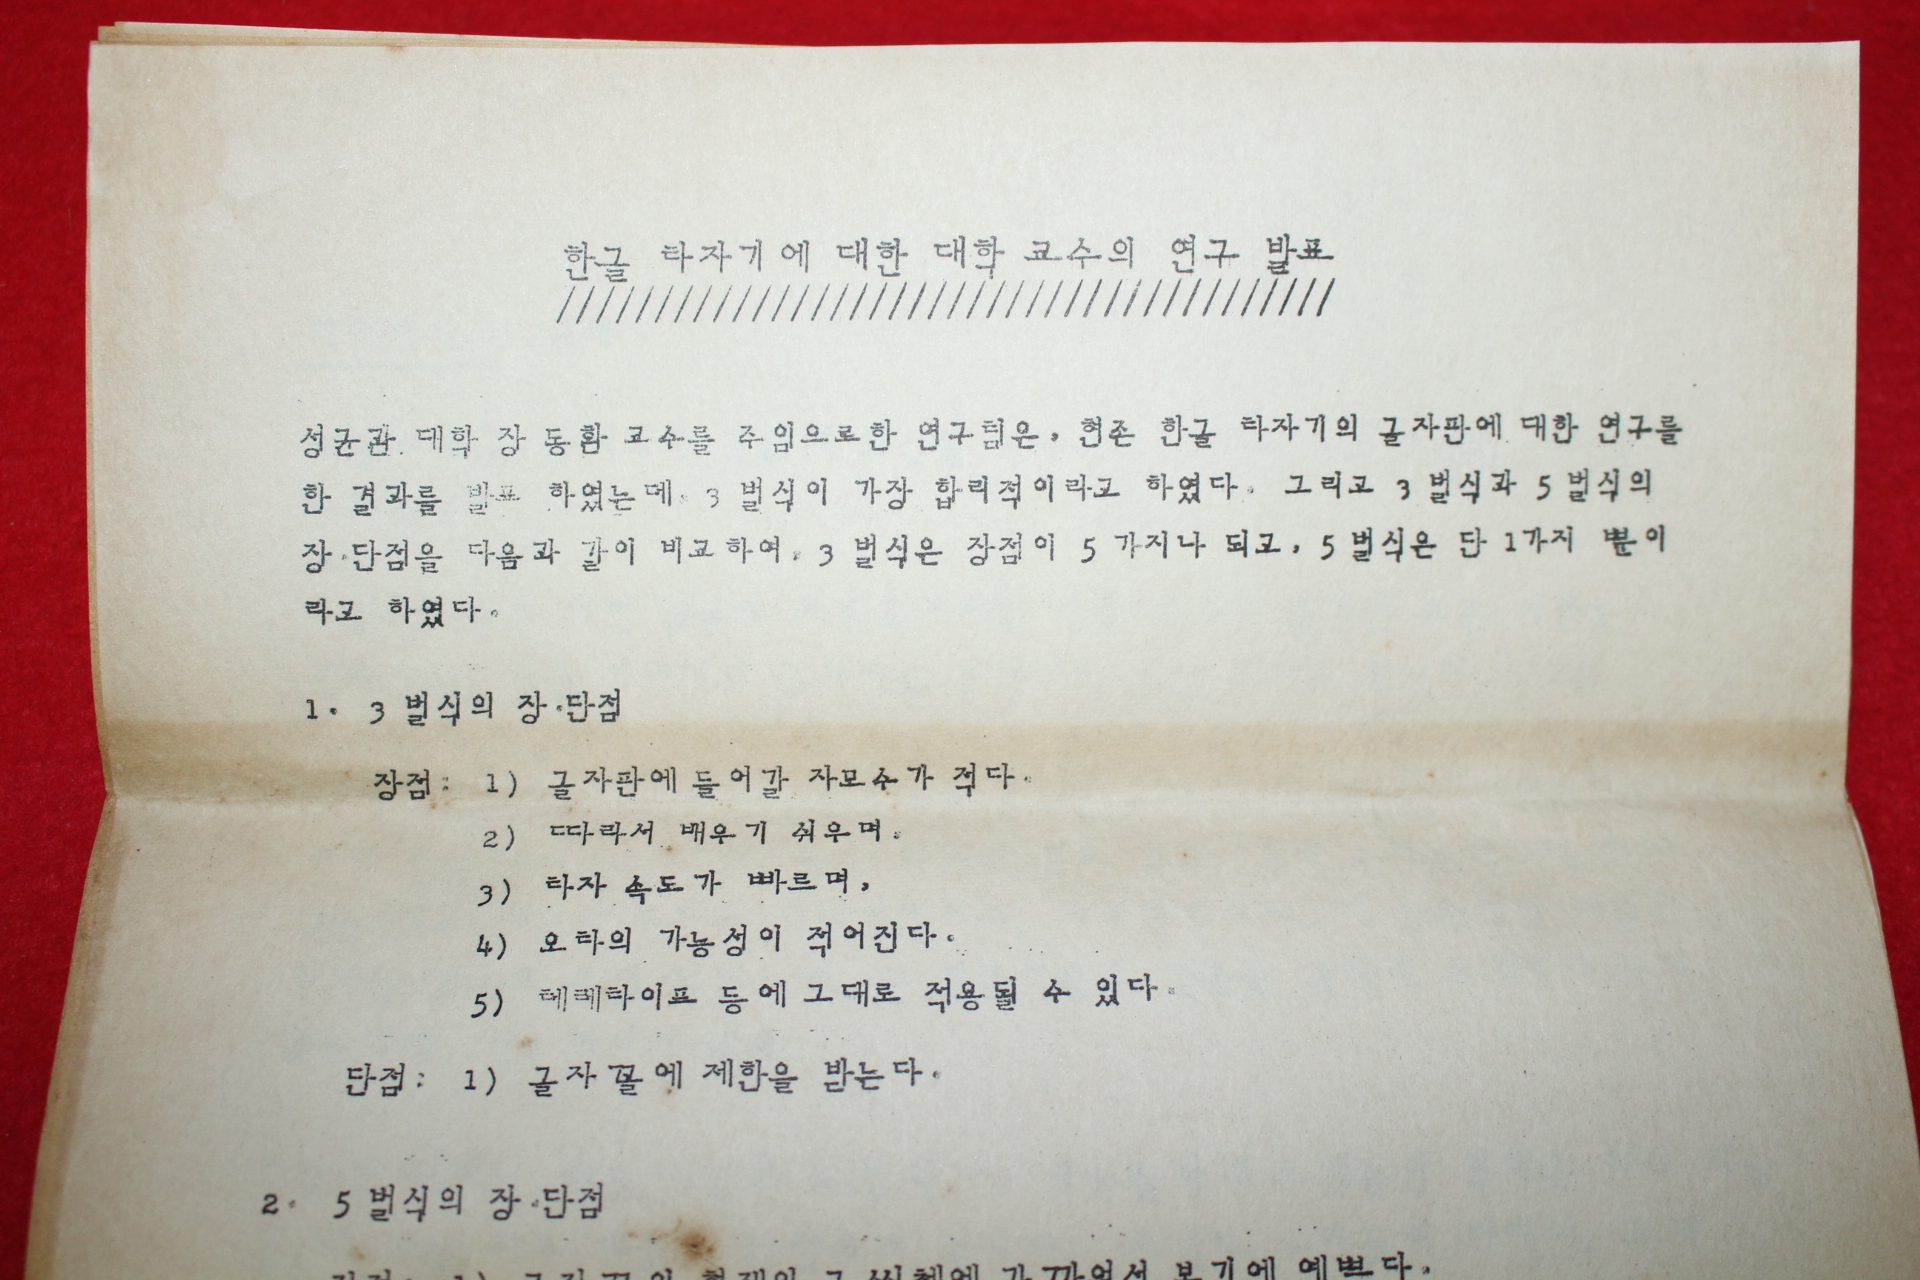 한글 타자기에 대한 대학 교수의 연구 발표
////////////////////////////////////////
성균관 대학 장 동환 교수를 주임으로한 연구팀은, 현존 한글 타자기의 글자판에 대한 연구를
한 결과를 발표 하였는데. 3 벌식이 가장 합리적이라고 하였다. 그리고 3 벌식과 5 벌식의
장.단점을 다음과 같이 비교하여. 3 벌식은 장점이 5 가지나 되고, 5 벌식은 단 1가지 뿐이
라고 하였다.
1. 3 벌식의 장.단점
장점: 1) 글자판에 들어갈 자모수가 적다.
2) 따라서 배우기 쉬우며.
3) 타자 속도가 빠르며,
4) 오타의 가능성이 적어진다.
5) 테레타이프 등에 그대로 적용될 수 있다.
단점: 1) 글자 꼴에 제한을 받는다.
2. 5 벌식의 장.단점
장점: 1) 글자 꼴이 현재의 그 씨체에 가까워서 보기에 예쁘다.